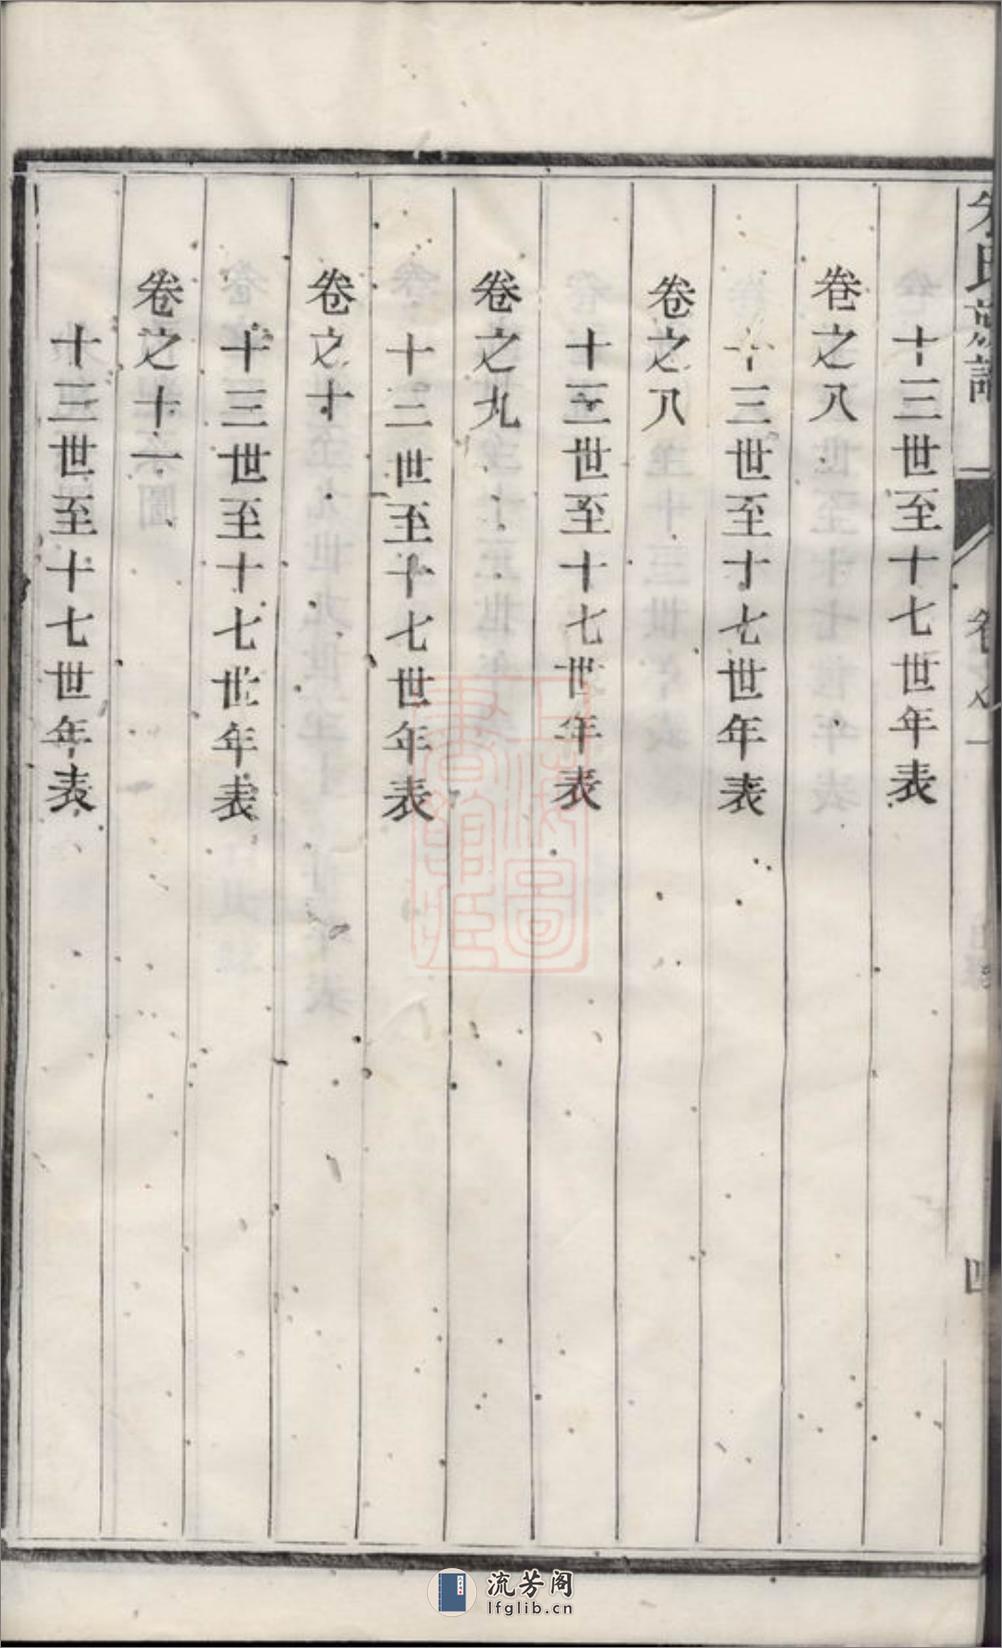 氏族譜
卷之一
四
十三世至十七世年表
卷之八
十三世至十七世年表
卷之八
十三世至十七世年表
卷之九
十三世至十七世年表
卷之十
十三世至十七世年表
卷之十一
十三世至十七世年表
上海圖書館藏
流芳阁
lfglib.cn